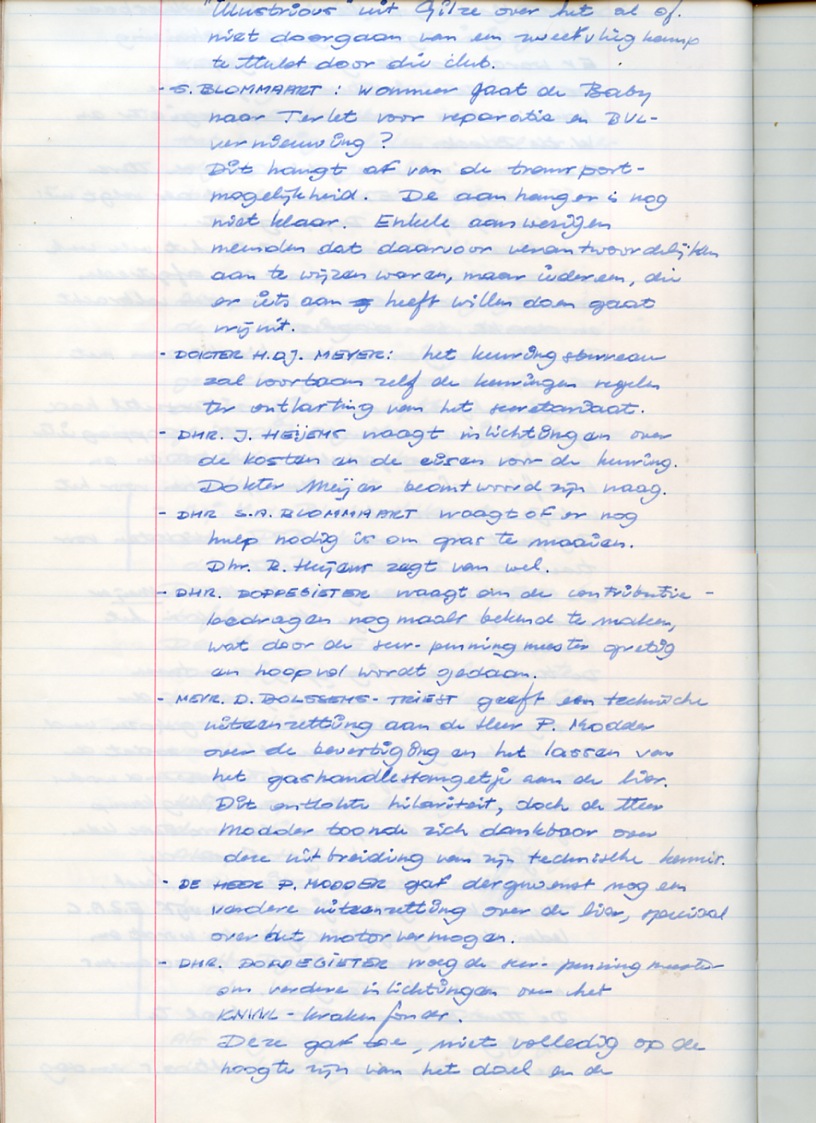 "Illustrious" uit Gilze over het al of
niet doorgaan van een zweefvliegkamp
te Hulst door die club.
- S. BLOMMAART : wanneer gaat de Baby
naar Terlet voor reparatie en BVL-
vernieuwing ?
Dit hangt af van de transport-
mogelijkheid. De aanhanger is nog
niet klaar. Enkele aanwezigen
meenden dat daarvoor verantwoordelijken
aan te wijzen waren, maar iedereen, die
er iets aan heeft willen doen gaat
vrijuit.
- DOKTER H.DJ. MEYER: het keuringsbureau
zal voortaan zelf de keuringen regelen
ter ontlasting van het secretariaat.
- DHR. J. HEIJENS vraagt inlichtingen over
de kosten en de eisen voor de keuring.
Dokter Meijer beantwoord zijn vraag.
- DHR S.A. BLOMMAART vraagt of er nog
hulp nodig is om gras te maaien.
Dhr. R. Heijens zegt van wel.
- DHR. DOPPEGIETER vraagt om de contributie-
bedragen nogmaals bekend te maken,
wat door de secr-penningmeester gretig
en hoopvol wordt gedaan.
- MEVR. D. DOLSSENS-TRIEST geeft een technische
uiteenzetting aan de Heer P. Modder
over de bevestiging en het lassen van
het gashandlestangetje aan de lier.
Dit ontlokte hilariteit, doch de Heer
Modder toonde zich dankbaar over
deze uitbreiding van zijn technische kennis.
- DE HEER P. MODDER gaf dergewenst nog een
verdere uiteenzetting over de lier, speciaal
over het motorvermogen.
- DHR. DOPPEGIETER vroeg de secr-penningmeester
om verdere inlichtingen over het
KNVVL - kraken fonds.
Deze gaf toe, niet volledig op de
hoogte zijn van het doel en de